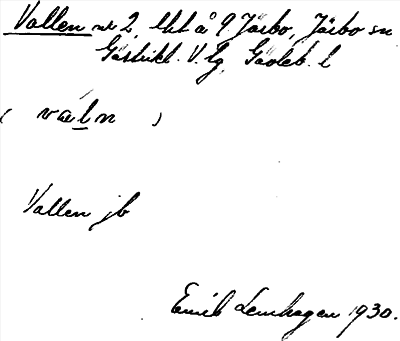 Vallen nr 2, tkt å 9 Järbo, Järbo sn
Gästrikl. V. tg, Gävleb. l
( valn )
Vallen jb
Emil Lenhagen 1930.